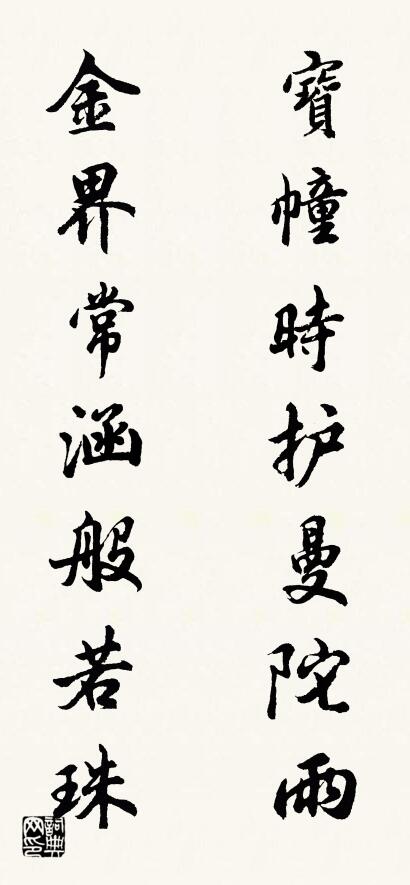 寶幢時护曼陀雨
金界常涵般若珠
詞典网印